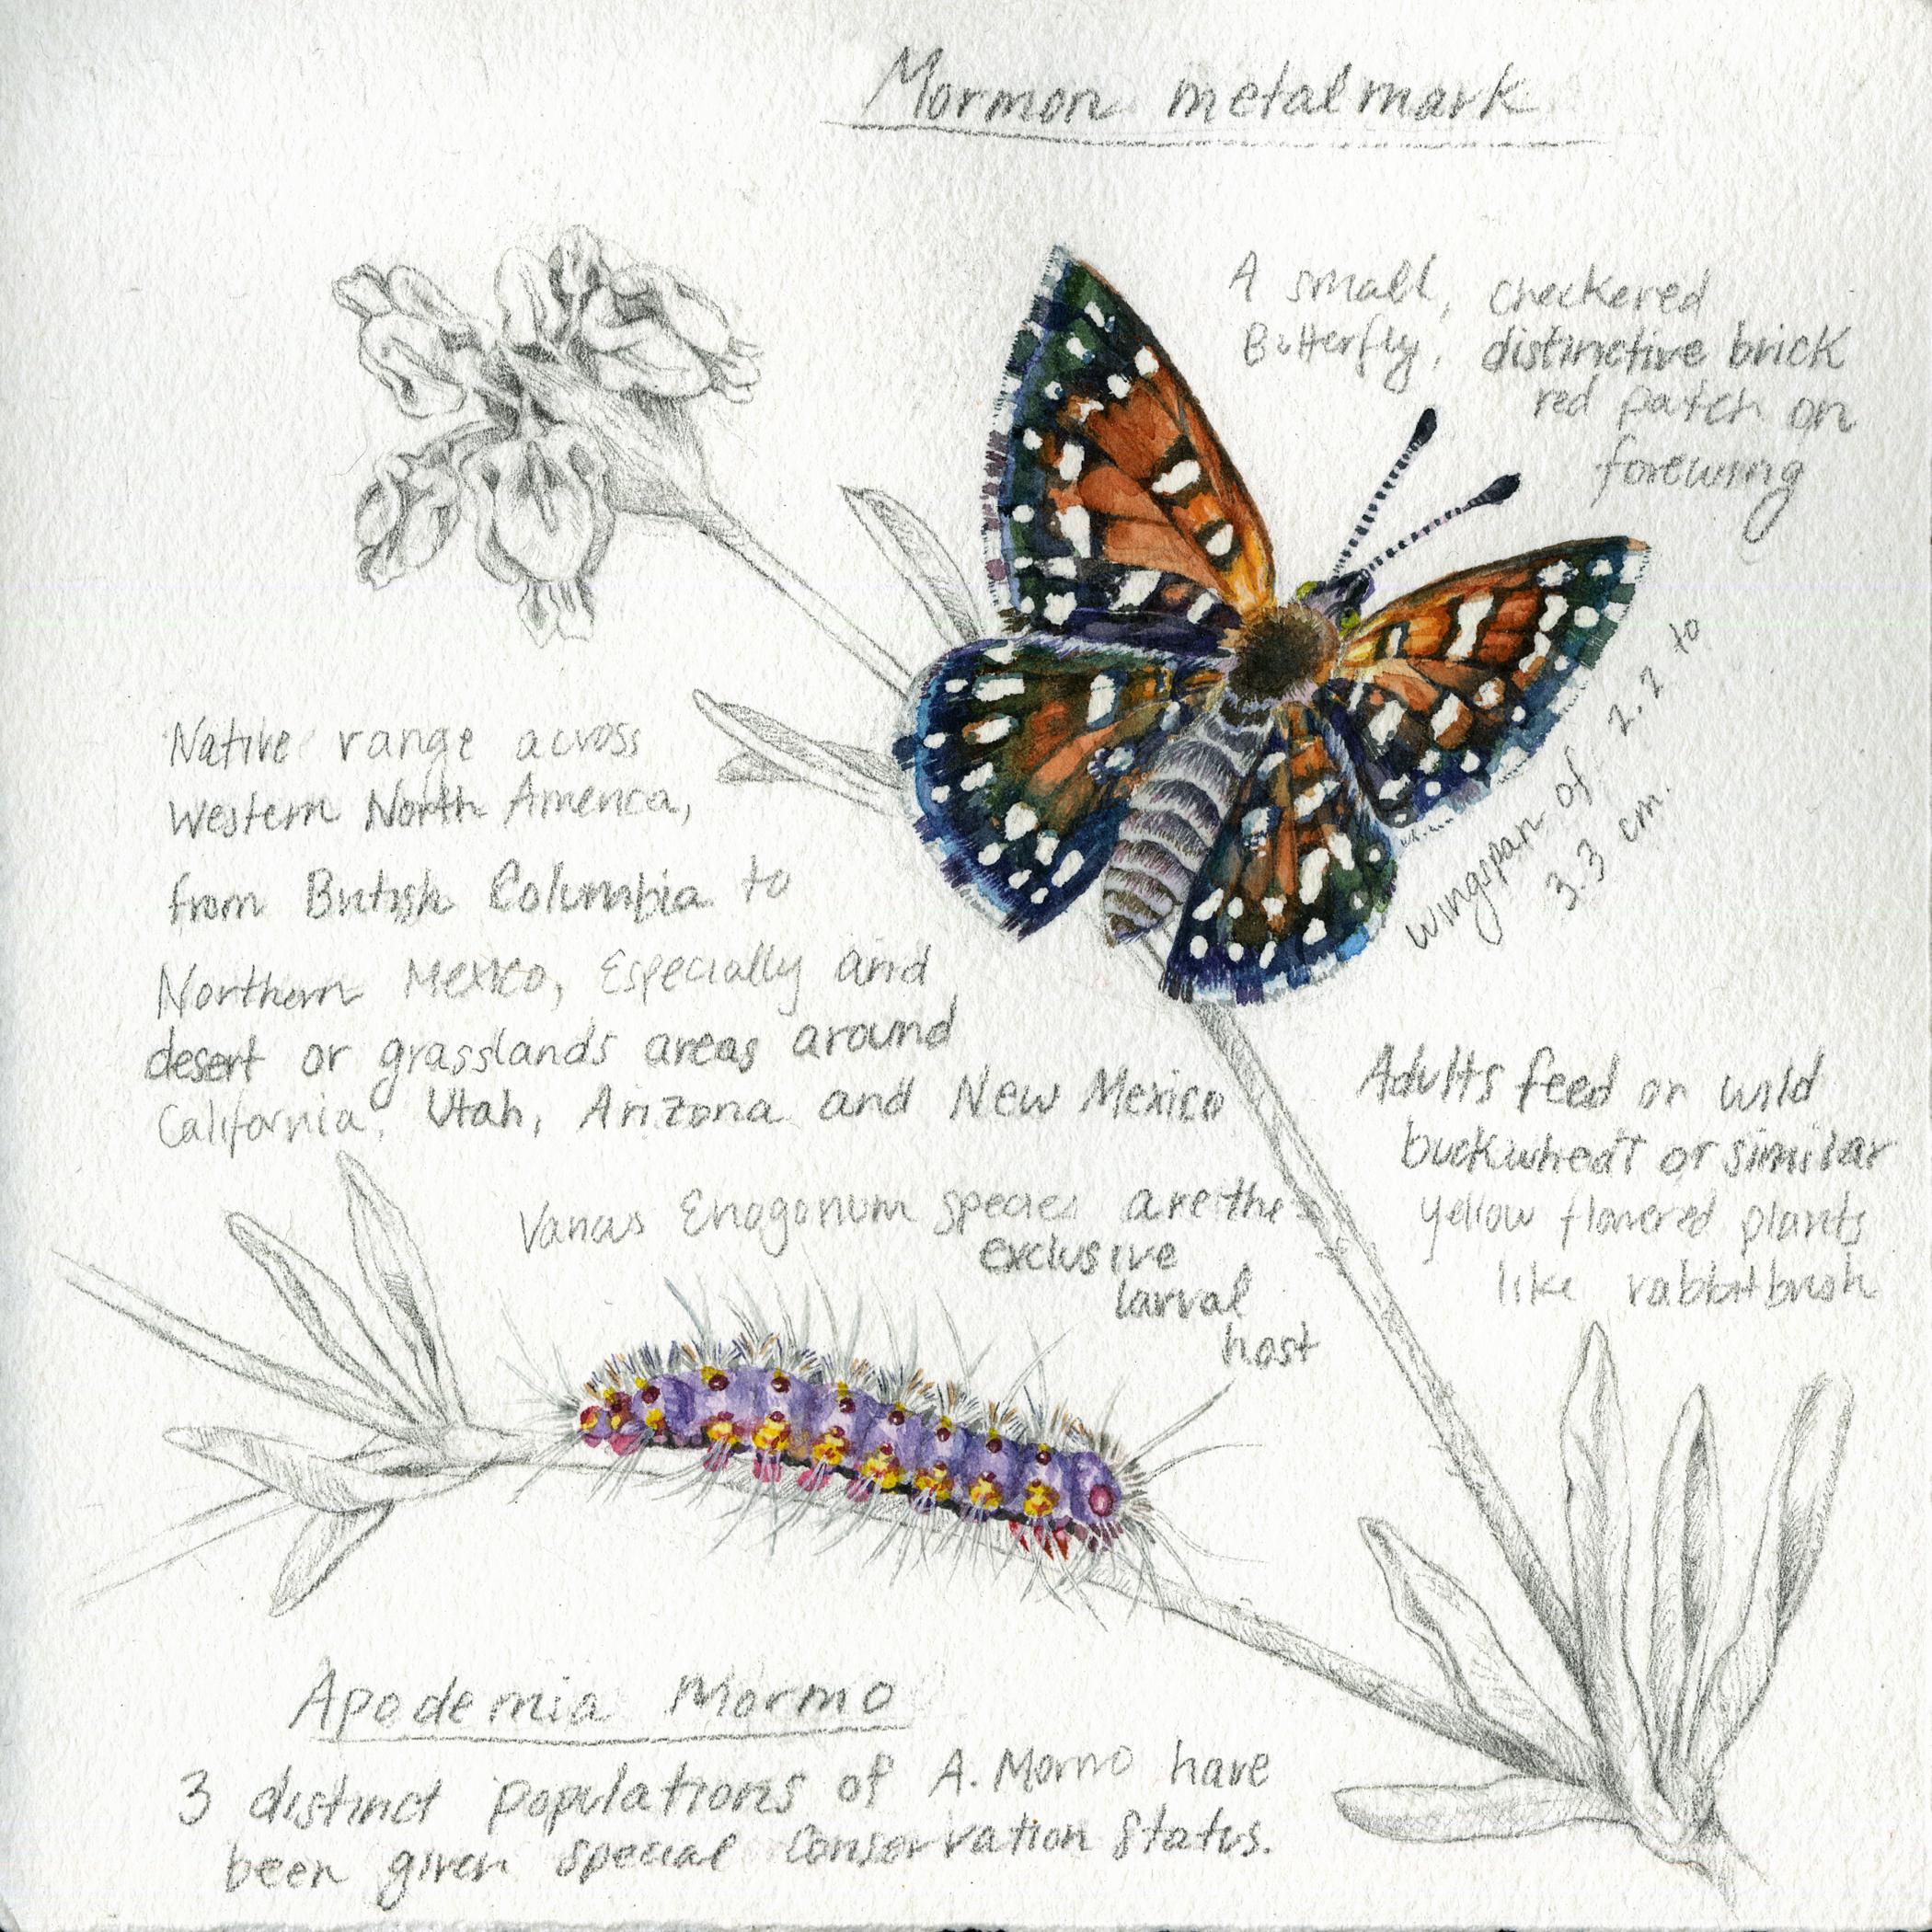 Mormon metalmark
A small, checkered
Butterfly, distinctive brick
red patch on
forewing
wingspan of 2.2 to
3.3 cm.
Native range across
Western North America,
from British Columbia to
Northern Mexico, Especially arid
desert or grasslands areas around
California, Utah, Arizona and New Mexico
Adults feed on wild
buckwheat or similar
yellow flowered plants
like rabbitbrush
Various Eriogonum species are the
exclusive
larval
host
Apodemia Mormo
3 distinct populations of A. Mormo have
been given special conservation status.